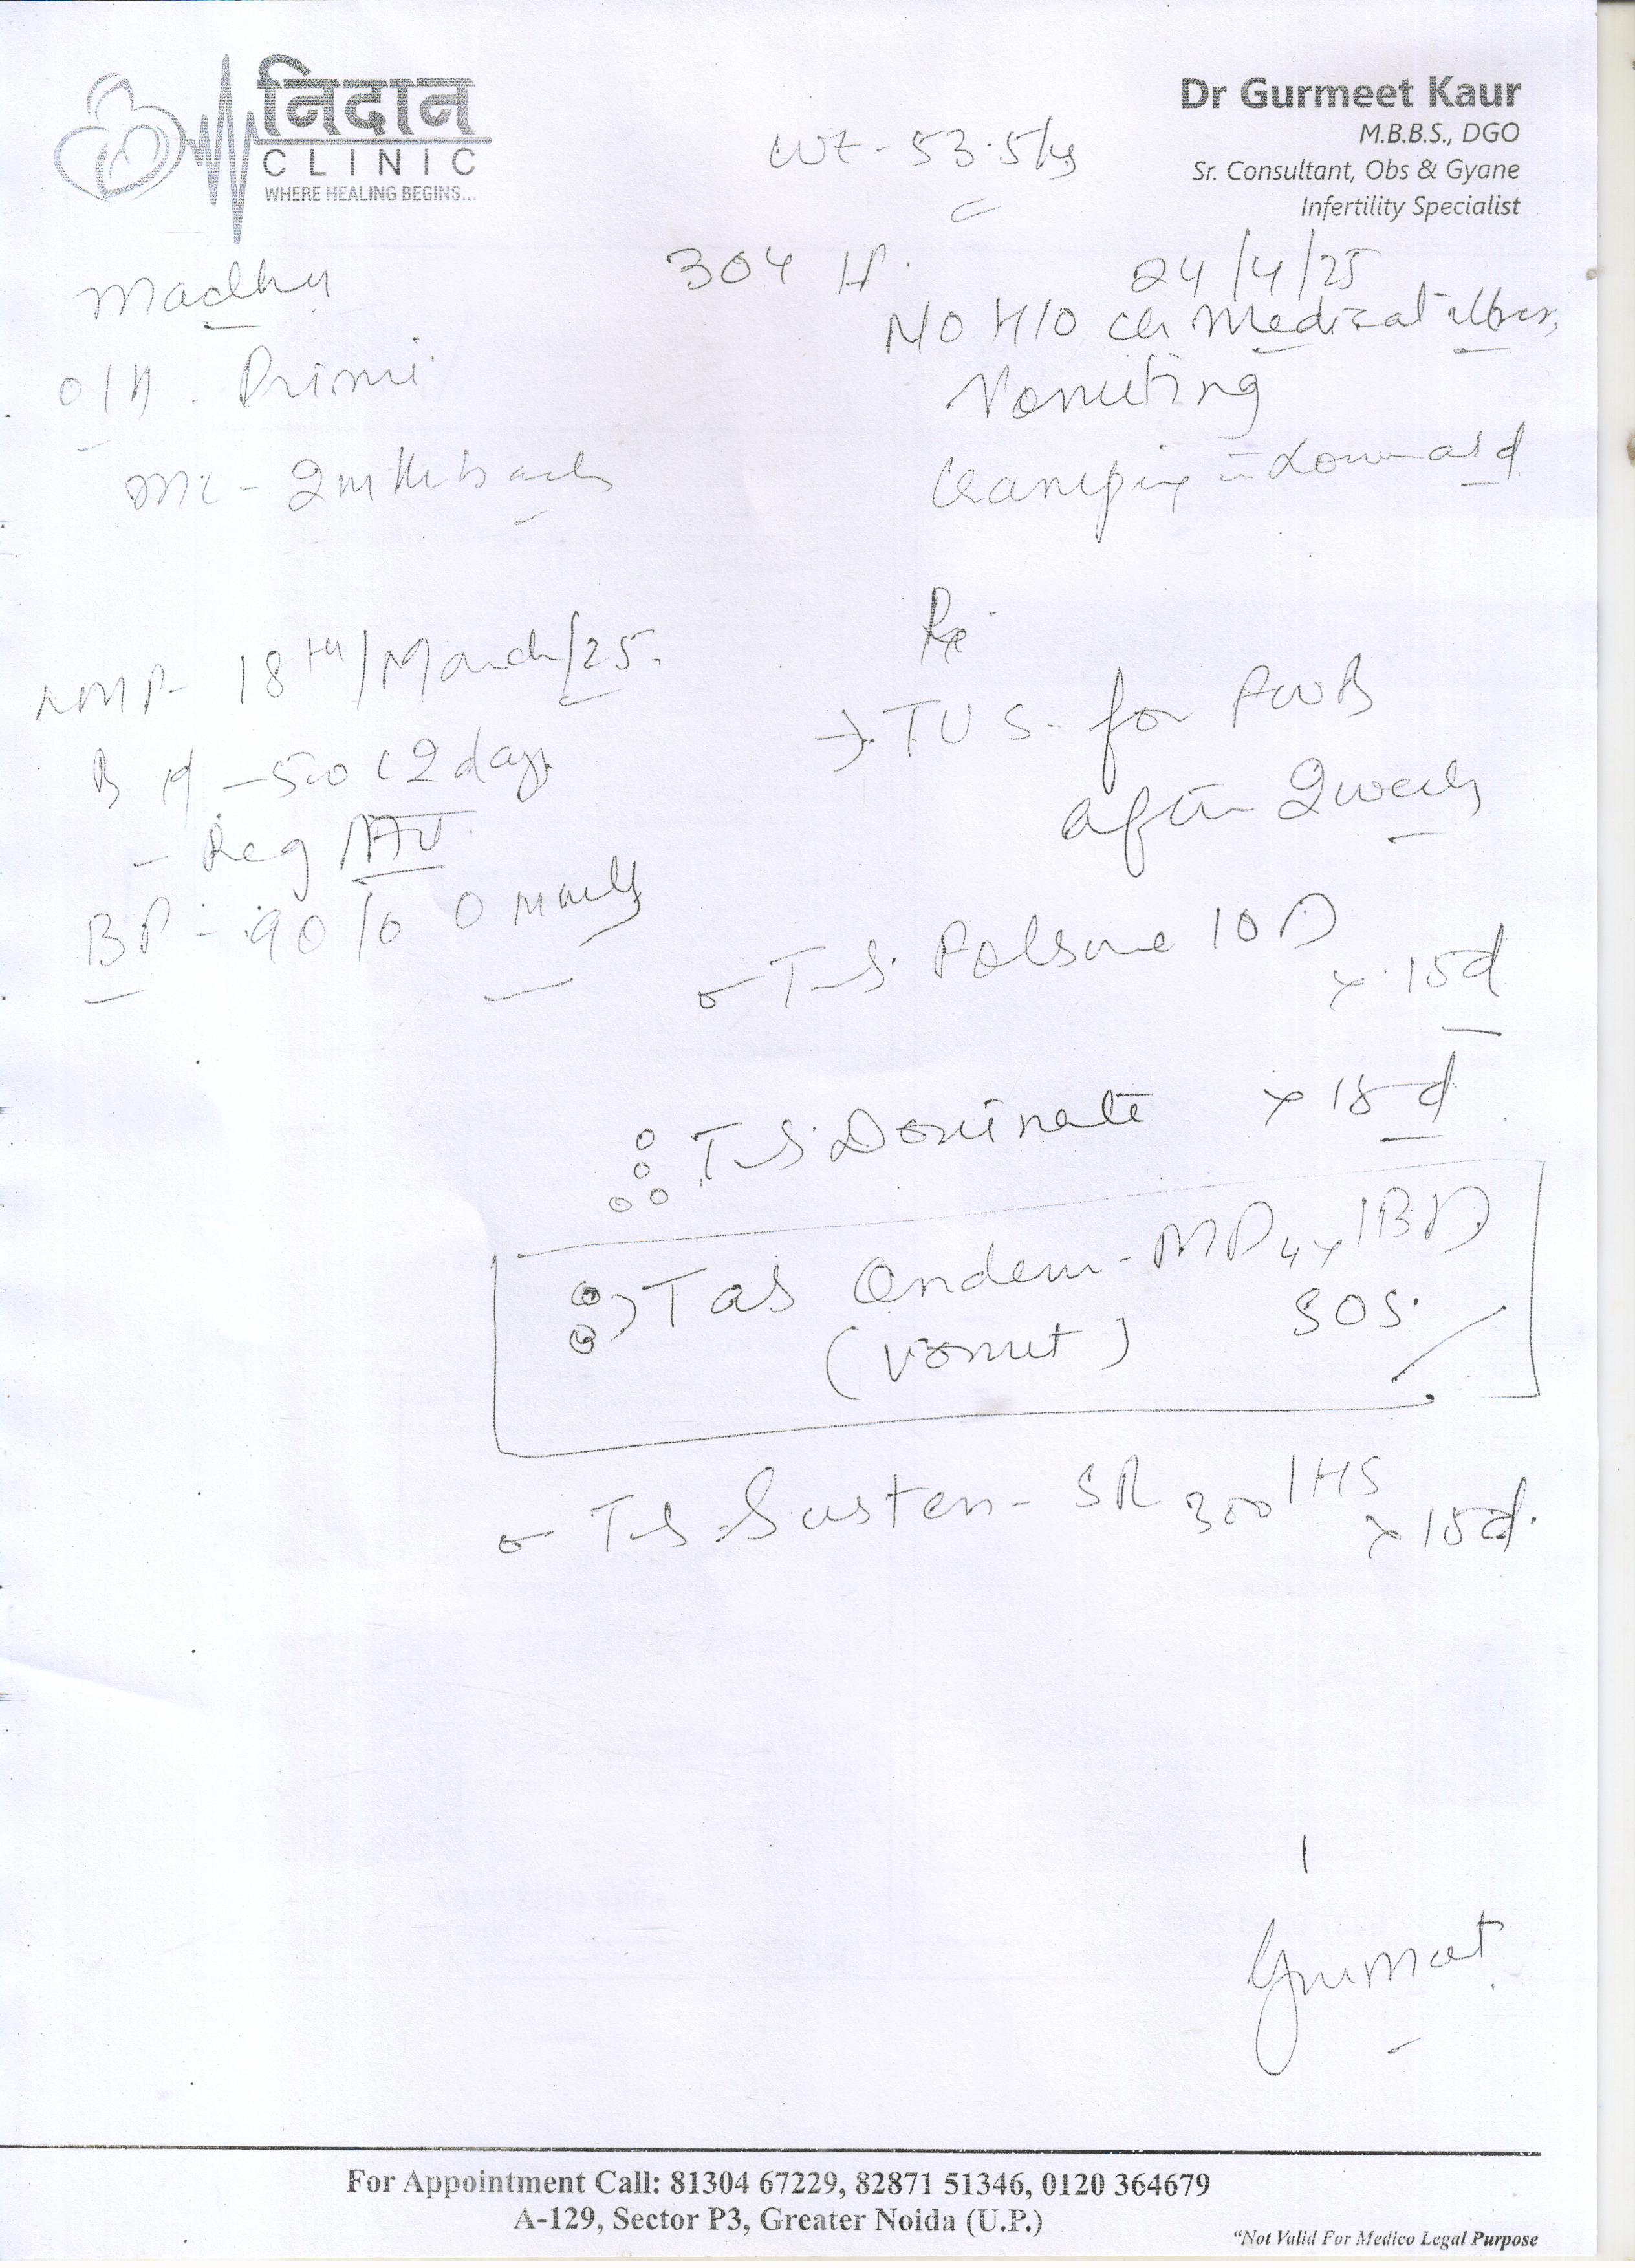 निदान
CLINIC
WHERE HEALING BEGINS...
Dr Gurmeet Kaur
M.B.B.S., DGO
Sr. Consultant, Obs & Gyane
Infertility Specialist
WT - 53.5 kg
Madhu
304 H.
24/4/25
O/H - Primi
N/O H/O Medical
Vomiting
2mth back
downward
Rx
LMP- 18th/March/25.
TVS for
after 2 weeks
2 days
- Reg
BP - 90/60 mmHg
10D
x 15d
Doxinate x 15d
Tab Ondem-MD4 x 1BD
(Vomit) SOS.
Susten - SR 300 1HS
x 15d.
Gurmeet
For Appointment Call: 81304 67229, 82871 51346, 0120 364679
A-129, Sector P3, Greater Noida (U.P.)
"Not Valid For Medico Legal Purpose